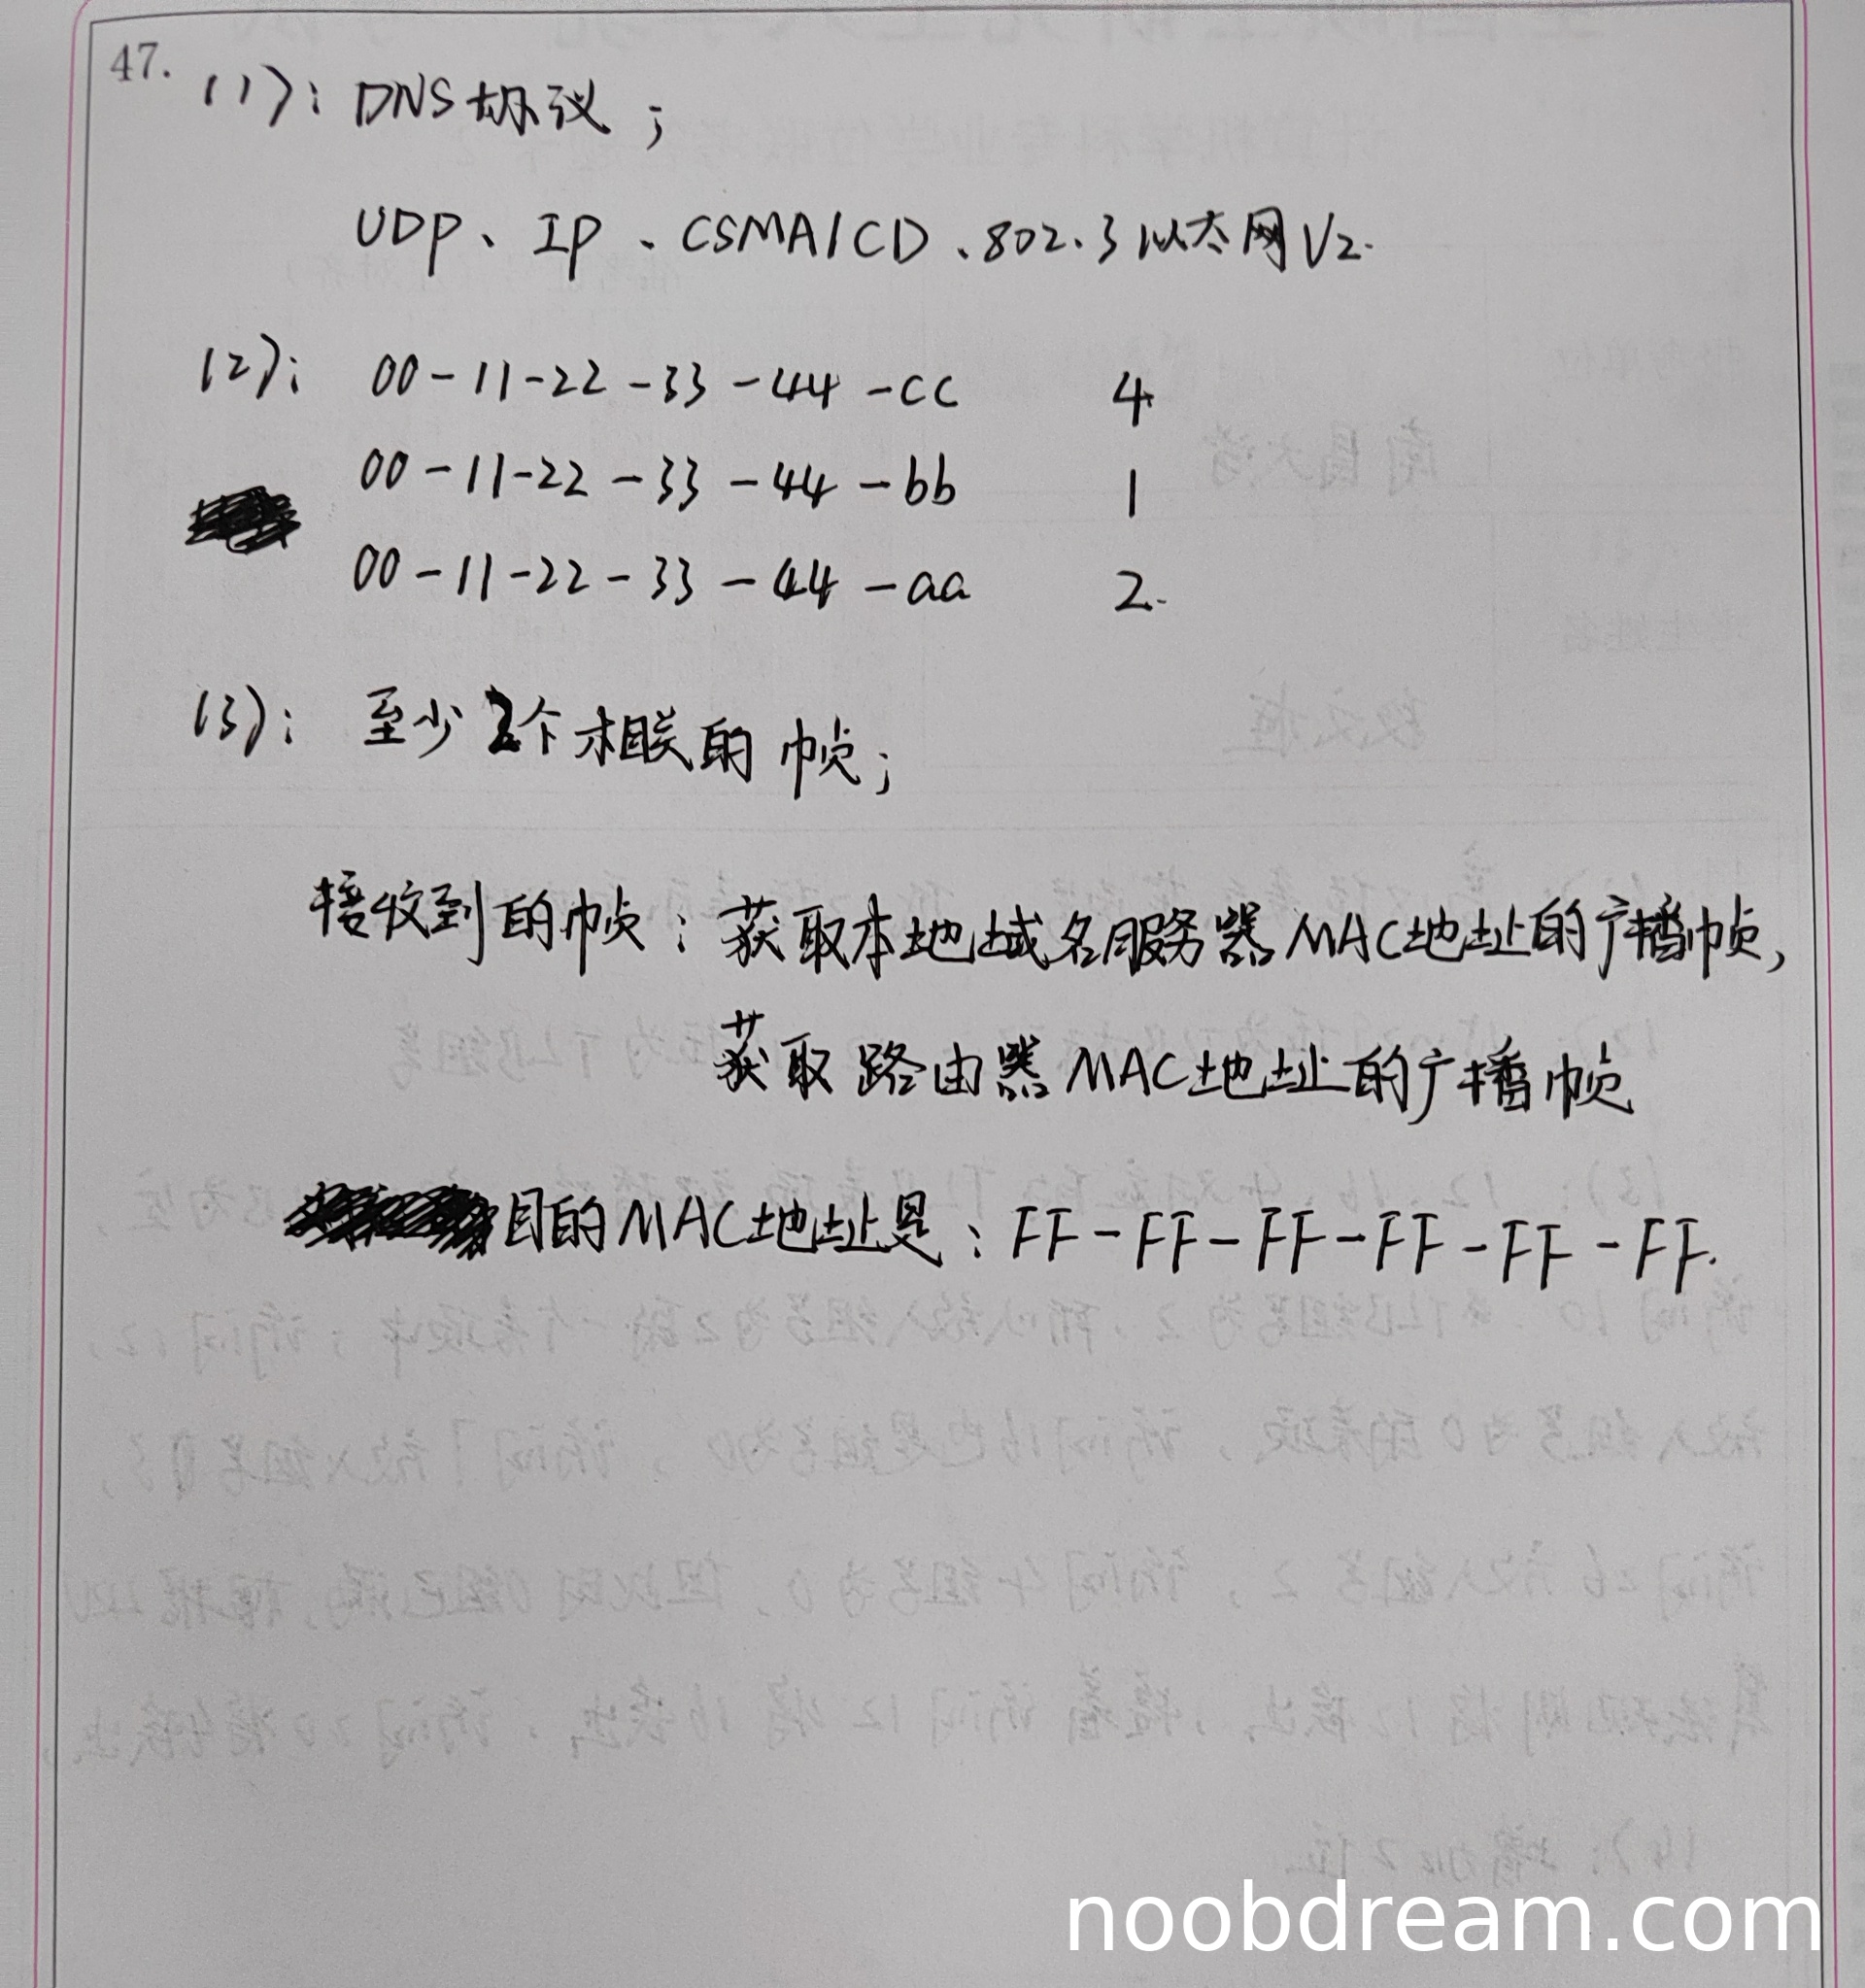 47. (1): DNS协议;
UDP、IP、CSMA/CD、802.3以太网V2.
(2): 00-11-22-33-44-cc 4
00-11-22-33-44-bb 1
00-11-22-33-44-aa 2.
(3): 至少2个相关的帧;
接收到的帧:获取本地域名服务器MAC地址的广播帧,
获取路由器MAC地址的广播帧
目的MAC地址是:FF-FF-FF-FF-FF-FF.
noobdream.com